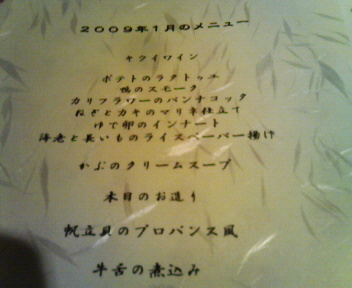 2009年1月のメニュー
キウイワイン
ポテトのラタトゥユ
鴨のスモーク
カリフラワーのパンナコッタ
ねぎとカキのマリネ仕立て
ゆで卵のインナート
海老と長いものライスペーパー揚げ
かぶのクリームスープ
本日のお造り
帆立貝のプロバンス風
牛舌の煮込み